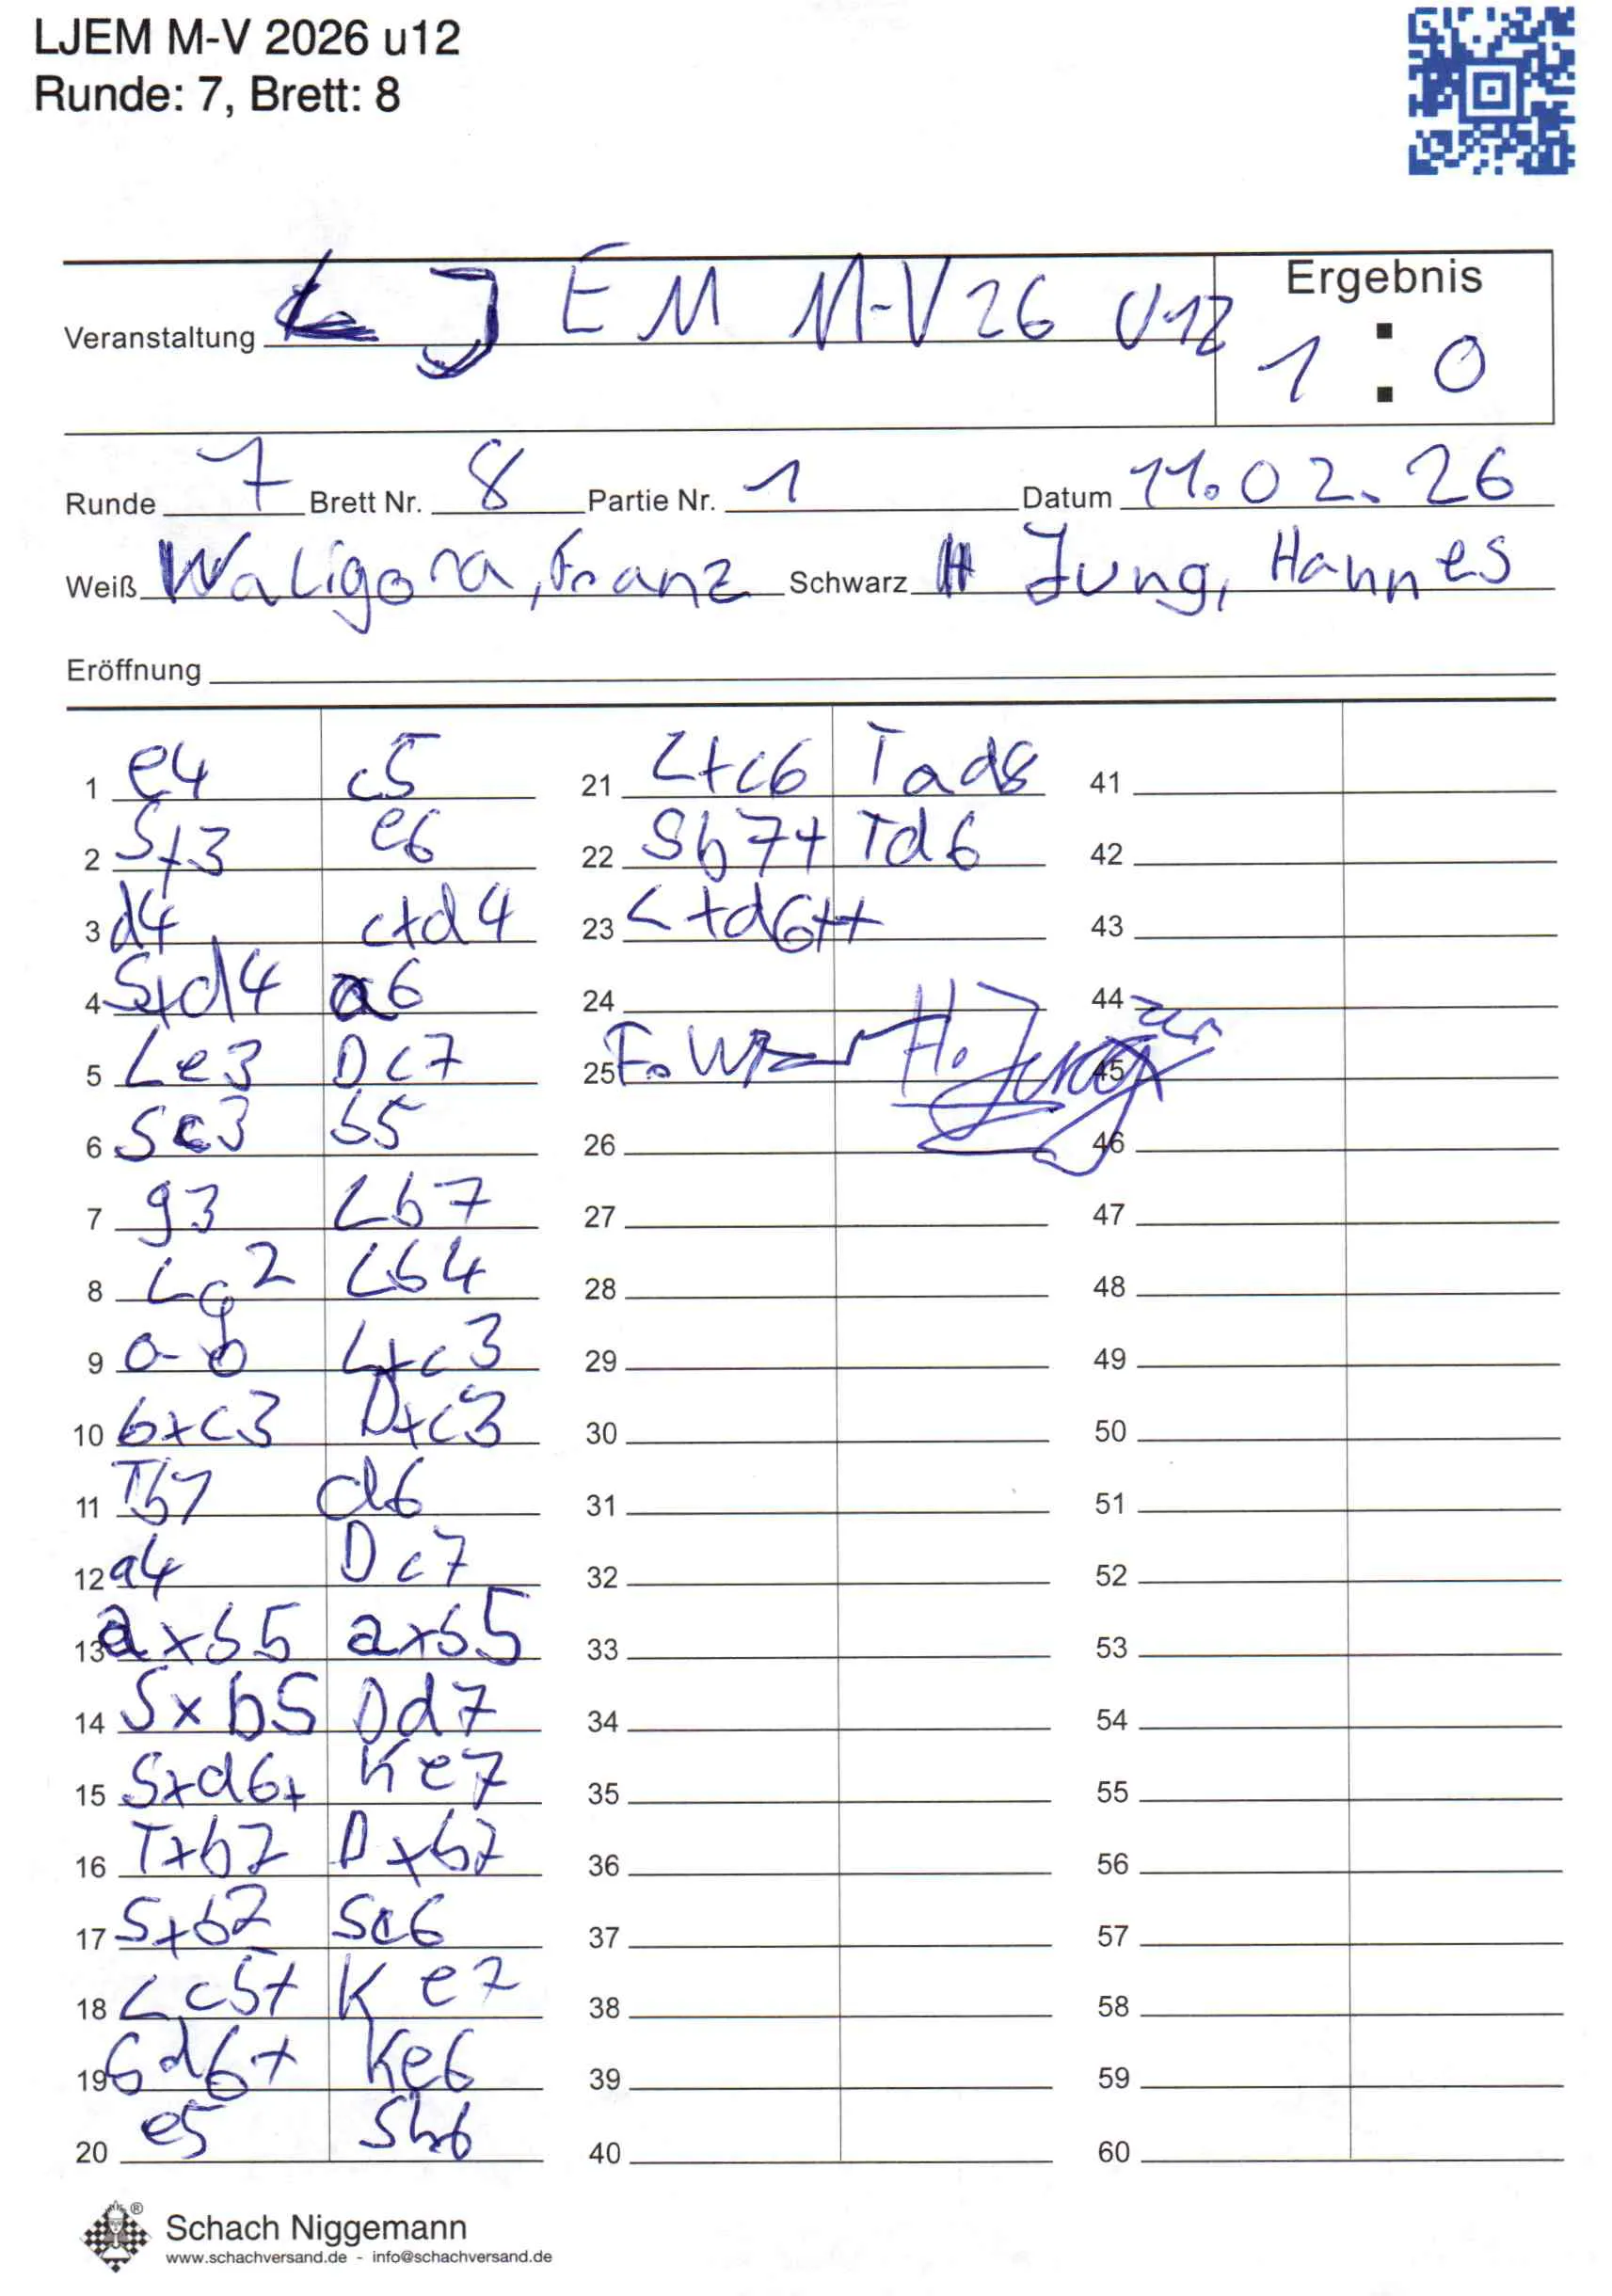 LJEM M-V 2026 u12
Runde: 7, Brett: 8
Veranstaltung L J E M M-V 26 U12
Ergebnis 1 : 0
Runde 7 Brett Nr. 8 Partie Nr. 1 Datum 11.02.26
Weiß Waligora, Franz Schwarz Jung, Hannes
Eröffnung
1 e4 c5
2 Sf3 e6
3 d4 c+d4
4 S+d4 a6
5 Le3 Dc7
6 Sc3 b5
7 g3 Lb7
8 Lg2 Lb4
9 0-0 L+c3
10 b+c3 D+c3
11 Tb1 d6
12 a4 Dc7
13 axb5 axb5
14 Sxb5 Dd7
15 Sxd6+ Ke7
16 Txb7 Dxb7
17 S+b7 Sc6
18 Lc5+ Ke7
19 Sd6+ Ke6
20 e5 Sh6
21 L+c6 Tad8
22 Sb7+ Td6
23 L+d6++
24
25 F. H. Jung
26
27
28
29
30
31
32
33
34
35
36
37
38
39
40
41
42
43
44
45
46
47
48
49
50
51
52
53
54
55
56
57
58
59
60
®
Schach Niggemann
www.schachversand.de - info@schachversand.de